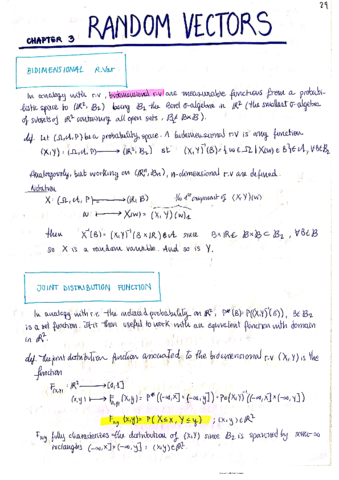 29
CHAPTER 3 RANDOM VECTORS
BIDIMENSIONAL R.Vet
In analogy with r.v, bidimensional r.v are measurable functions from a probabi-
listic space to (ℝ², B₂) being B₂ the Borel σ-algebra in ℝ² (the smallest σ-algebra
of subsets of ℝ² containing all open sets. B₂ ≠ B×B).
def. Let (Ω, A, P) be a probability space. A bidimensional r.v is any function
(X,Y): (Ω, A, P) → (ℝ², B₂) st (X,Y)⁻¹(B) = {ω ∈ Ω | X(ω) ∈ B} ∈ A, ∀B ∈ B₂
Analogously, but working on (ℝⁿ, Bₙ), n-dimensional r.v are defined.
Notation
X: (Ω, A, P) → (ℝ, B) component of (X,Y)(ω)
ω → X(ω) = (X,Y)(ω)₁
then X⁻¹(B) = (X,Y)⁻¹(B×ℝ) ∈ A since B×ℝ ∈ B×B ⊂ B₂, ∀B ∈ B
so X is a random variable. And so is Y.
JOINT DISTRIBUTION FUNCTION
In analogy with r.v. the induced probability on ℝ², P*(B) = P((X,Y)⁻¹(B)), B ∈ B₂
is a set function. It is then useful to work with an equivalent function with domain
in ℝ².
def. The joint distribution function associated to the bidimensional r.v (X,Y) is the
function
F(X,Y): ℝ² → [0,1]
(x,y) → F(X,Y)(x,y) = P*((-∞,x]×(-∞,y]) = P((X,Y)⁻¹((-∞,x]×(-∞,y]))
Fxy(x,y) = P(X≤x, Y≤y) ; (x,y) ∈ ℝ²
Fxy fully characterises the distribution of (X,Y) since B₂ is generated by
rectangles (-∞,x]×(-∞,y] ; (x,y) ∈ ℝ²